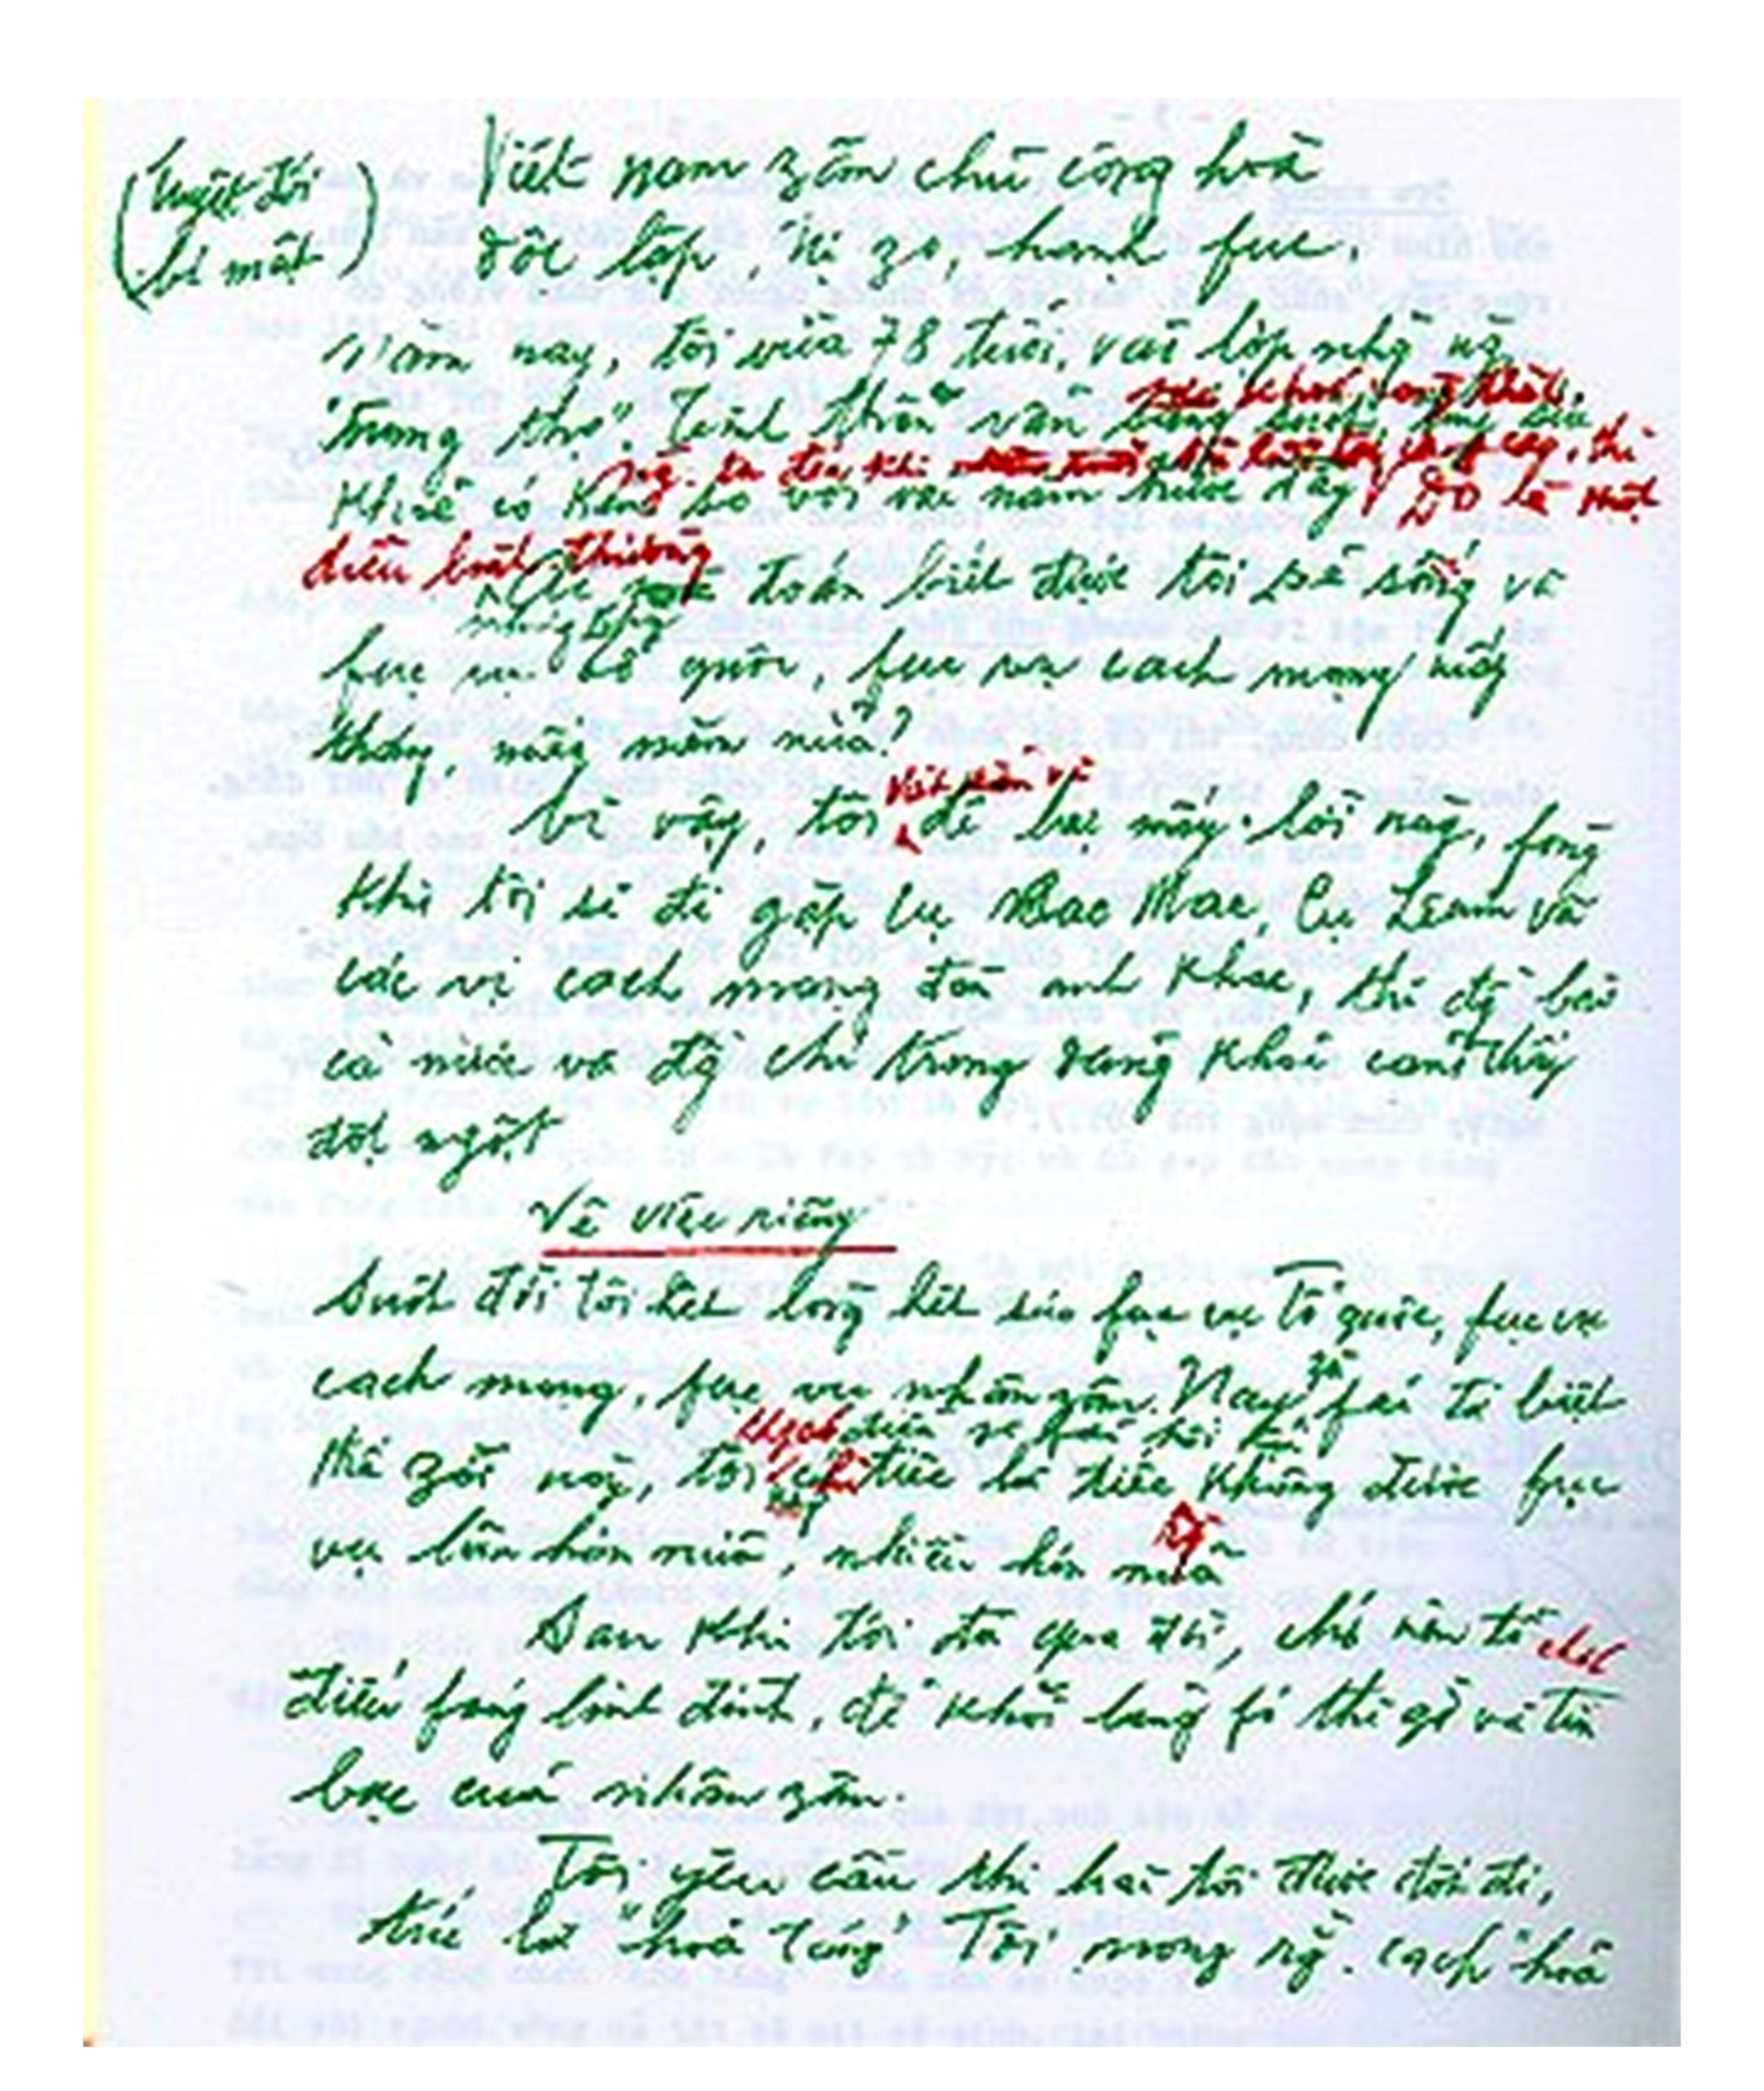 (tuyệt đối
bí mật)
Việt nam zân chủ cộng hoà
độc lập, tự zo, hạnh fúc.
Năm nay, tôi vừa 78 tuổi, vào lớp những ng.
"Trung thọ". Tinh thần vẫn sáng suốt, tuy sức
khoẻ có kém so với vài năm trước đây
ng. ta đến khi
thì
Đó là một
điều bình thường
Ai mà đoán biết được tôi sẽ sống và
fục vụ tổ quốc, fục vụ cách mạng mấy
tháng, mấy năm nữa?
Vì vậy, tôi để lại mấy lời này, fòng
khi tôi sẽ đi gặp cụ Các Mác, Cụ Lênin và
các vị cách mạng đàn anh khác, thì đ/c bào
cả nước và đ/c chí trong đảng khỏi cảm thấy
đột ngột
Về việc riêng
Suốt đời tôi hết lòng hết sức fục vụ Tổ quốc, fục vụ
cách mạng, fục vụ nhân zân. Nay zù fải từ biệt
thế zới này, tôi không có điều gì fải hối hận
chỉ tiếc là tiếc không được fục
vụ lâu hơn nữa, nhiều hơn nữa
Sau khi tôi đã qua đời, chớ nên tổ chức
điếu fúng linh đình, để khỏi lãng fí thì giờ và tiền
bạc của nhân zân.
Tôi yêu cầu thi hài tôi được đốt đi,
tức là "hoả táng" Tôi mong rằ. cách "hoả